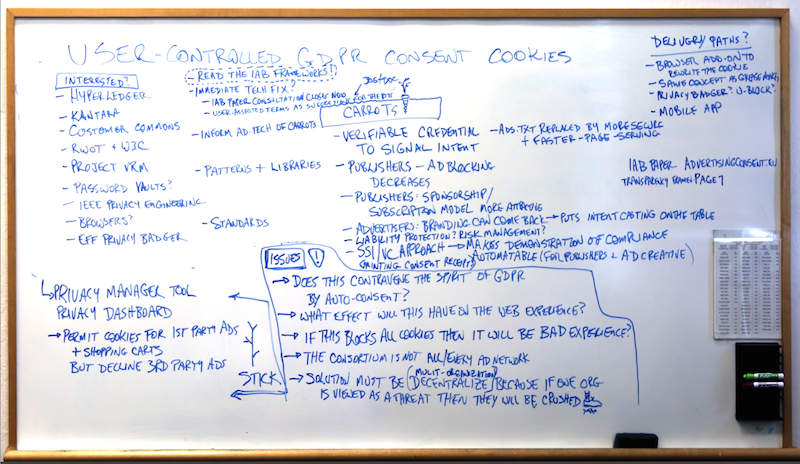 USER-CONTROLLED GDPR CONSENT COOKIES
INTERESTED?
- HYPERLEDGER
- KANTARA
- CUSTOMER COMMONS
- RWOT + W3C
- PROJECT VRM
- PASSWORD VAULTS?
- IEEE PRIVACY ENGINEERING
- BROWSERS?
- EFF PRIVACY BADGER
- READ THE IAB FRAMEWORKS!
- IMMEDIATE TECH FIX?
- IAB PAPER CONSULTATION CLOSES
- USER-ASSERTED TERMS AS
- INFORM AD-TECH OF CARROTS
- PATTERNS + LIBRARIES
- STANDARDS
CARROTS
- VERIFIABLE CREDENTIAL
TO SIGNAL INTENT
- PUBLISHERS - AD BLOCKING
DECREASES
- PUBLISHERS: SPONSORSHIP/
SUBSCRIPTION MODEL MORE
- ADVERTISERS: BRANDING CAN COME BACK → PUTS INTENT CASTING ON THE TABLE
- LIABILITY PROTECTION? RISK MANAGEMENT?
- SSI/VC APPROACH → MAKES DEMONSTRATION OF COMPLIANCE
(MINTING CONSENT RECEIPT) AUTOMATABLE (FOR PUBLISHERS + AD CREATIVE)
- ADS.TXT REPLACED BY MORE SECURE
+ FASTER-PAGE-SERVING
DELIVERY PATHS?
- BROWSER ADD-ON TO
REWRITE THE COOKIE
- SAME CONCEPT AS
- PRIVACY BADGER? U-BLOCK?
- MOBILE APP
IAB PAPER ADVERTISINGCONSENT.EU
TRANSPARENCY PAGE 7
ISSUES !
→ DOES THIS CONTRAVENE THE SPIRIT OF GDPR
BY AUTO-CONSENT?
→ WHAT EFFECT WILL THIS HAVE ON THE WEB EXPERIENCE?
→ IF THIS BLOCKS ALL COOKIES THEN IT WILL BE BAD EXPERIENCE?
→ THE CONSORTIUM IS NOT ALL/EVERY AD NETWORK
(MULIT-ORGANIZATION)
→ SOLUTION MUST BE DECENTRALIZE/BECAUSE IF ONE ORG
IS VIEWED AS A THREAT THEN THEY WILL BE CRUSHED
STICK
↳ PRIVACY MANAGER TOOL
PRIVACY DASHBOARD
→ PERMIT COOKIES FOR 1ST PARTY ADS
+ SHOPPING CARTS
BUT DECLINE 3RD PARTY ADS